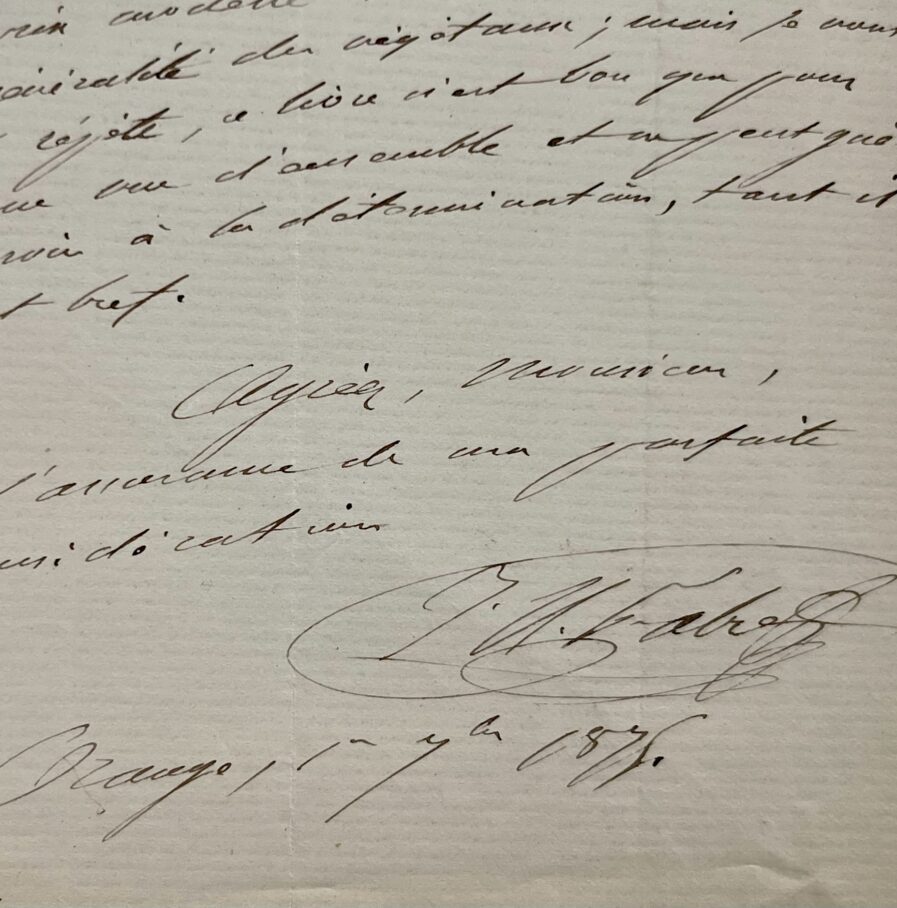 prix modéré
généralité des végétaux ; mais je vous
répète, ce livre n'est bon que pour
une vue d'ensemble et ne peut guè
à la détermination, tant il
t bref.
Agréez, Monsieur,
l'assurance de ma parfaite
nsidération
J. H. Fabre
Orange, 1er 7bre 1875.